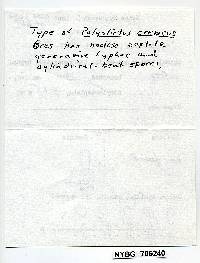 Type of Polystictus
Bres has nodose septate
generative hyphae and
cylindrical-bent spores,
NYBG 706240